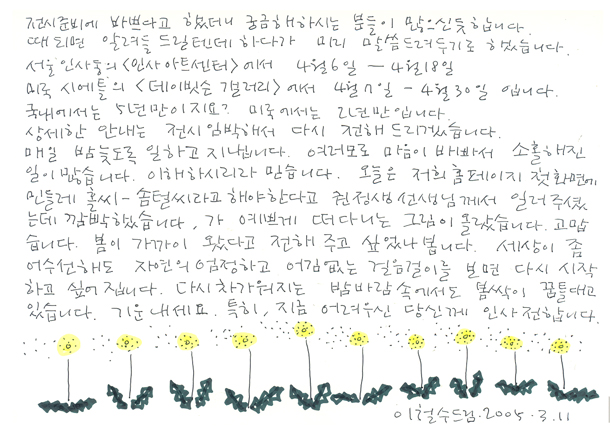 전시준비에 바쁘다고 했더니 궁금해하시는 분들이 많으신듯합니다.
때되면 알려들 드릴텐데 하다가 미리 말씀드려두기로 하였습니다.
서울 인사동의 <인사아트센터>에서 4월6일 — 4월18일
미국 시에틀의 <데이빗슨 갤러리>에서 4월 7일 - 4월30일 입니다.
국내에서는 5년만이지요? 미국에서는 2년만입니다.
상세한 안내는 전시임박해서 다시 전해드리겠습니다.
매일 밤늦도록 일하고 지냅니다. 여러모로 마음이 바빠서 소홀해진
일이 많습니다. 이해하시리라 믿습니다. 오늘은 저희 홈페이지 첫화면에
민들레 홀씨- 솜털씨라고 해야한다고 권정생선생님께서 일러주셨
는데 깜빡했습니다, 가 예쁘게 떠다니는 그림이 올랐습니다. 고맙
습니다. 봄이 가까이 왔다고 전해 주고 싶었나 봅니다. 세상이 좀
어수선해도 자연의 엄정하고 어김없는 걸음걸이를 보면 다시 시작
하고 싶어집니다. 다시 차가워지는 밤바람 속에서도 봄싹이 꿈틀대고
있습니다. 기운내세요. 특히, 지금 어려우신 당신께 인사전합니다.
이철수드림.2005.3.11